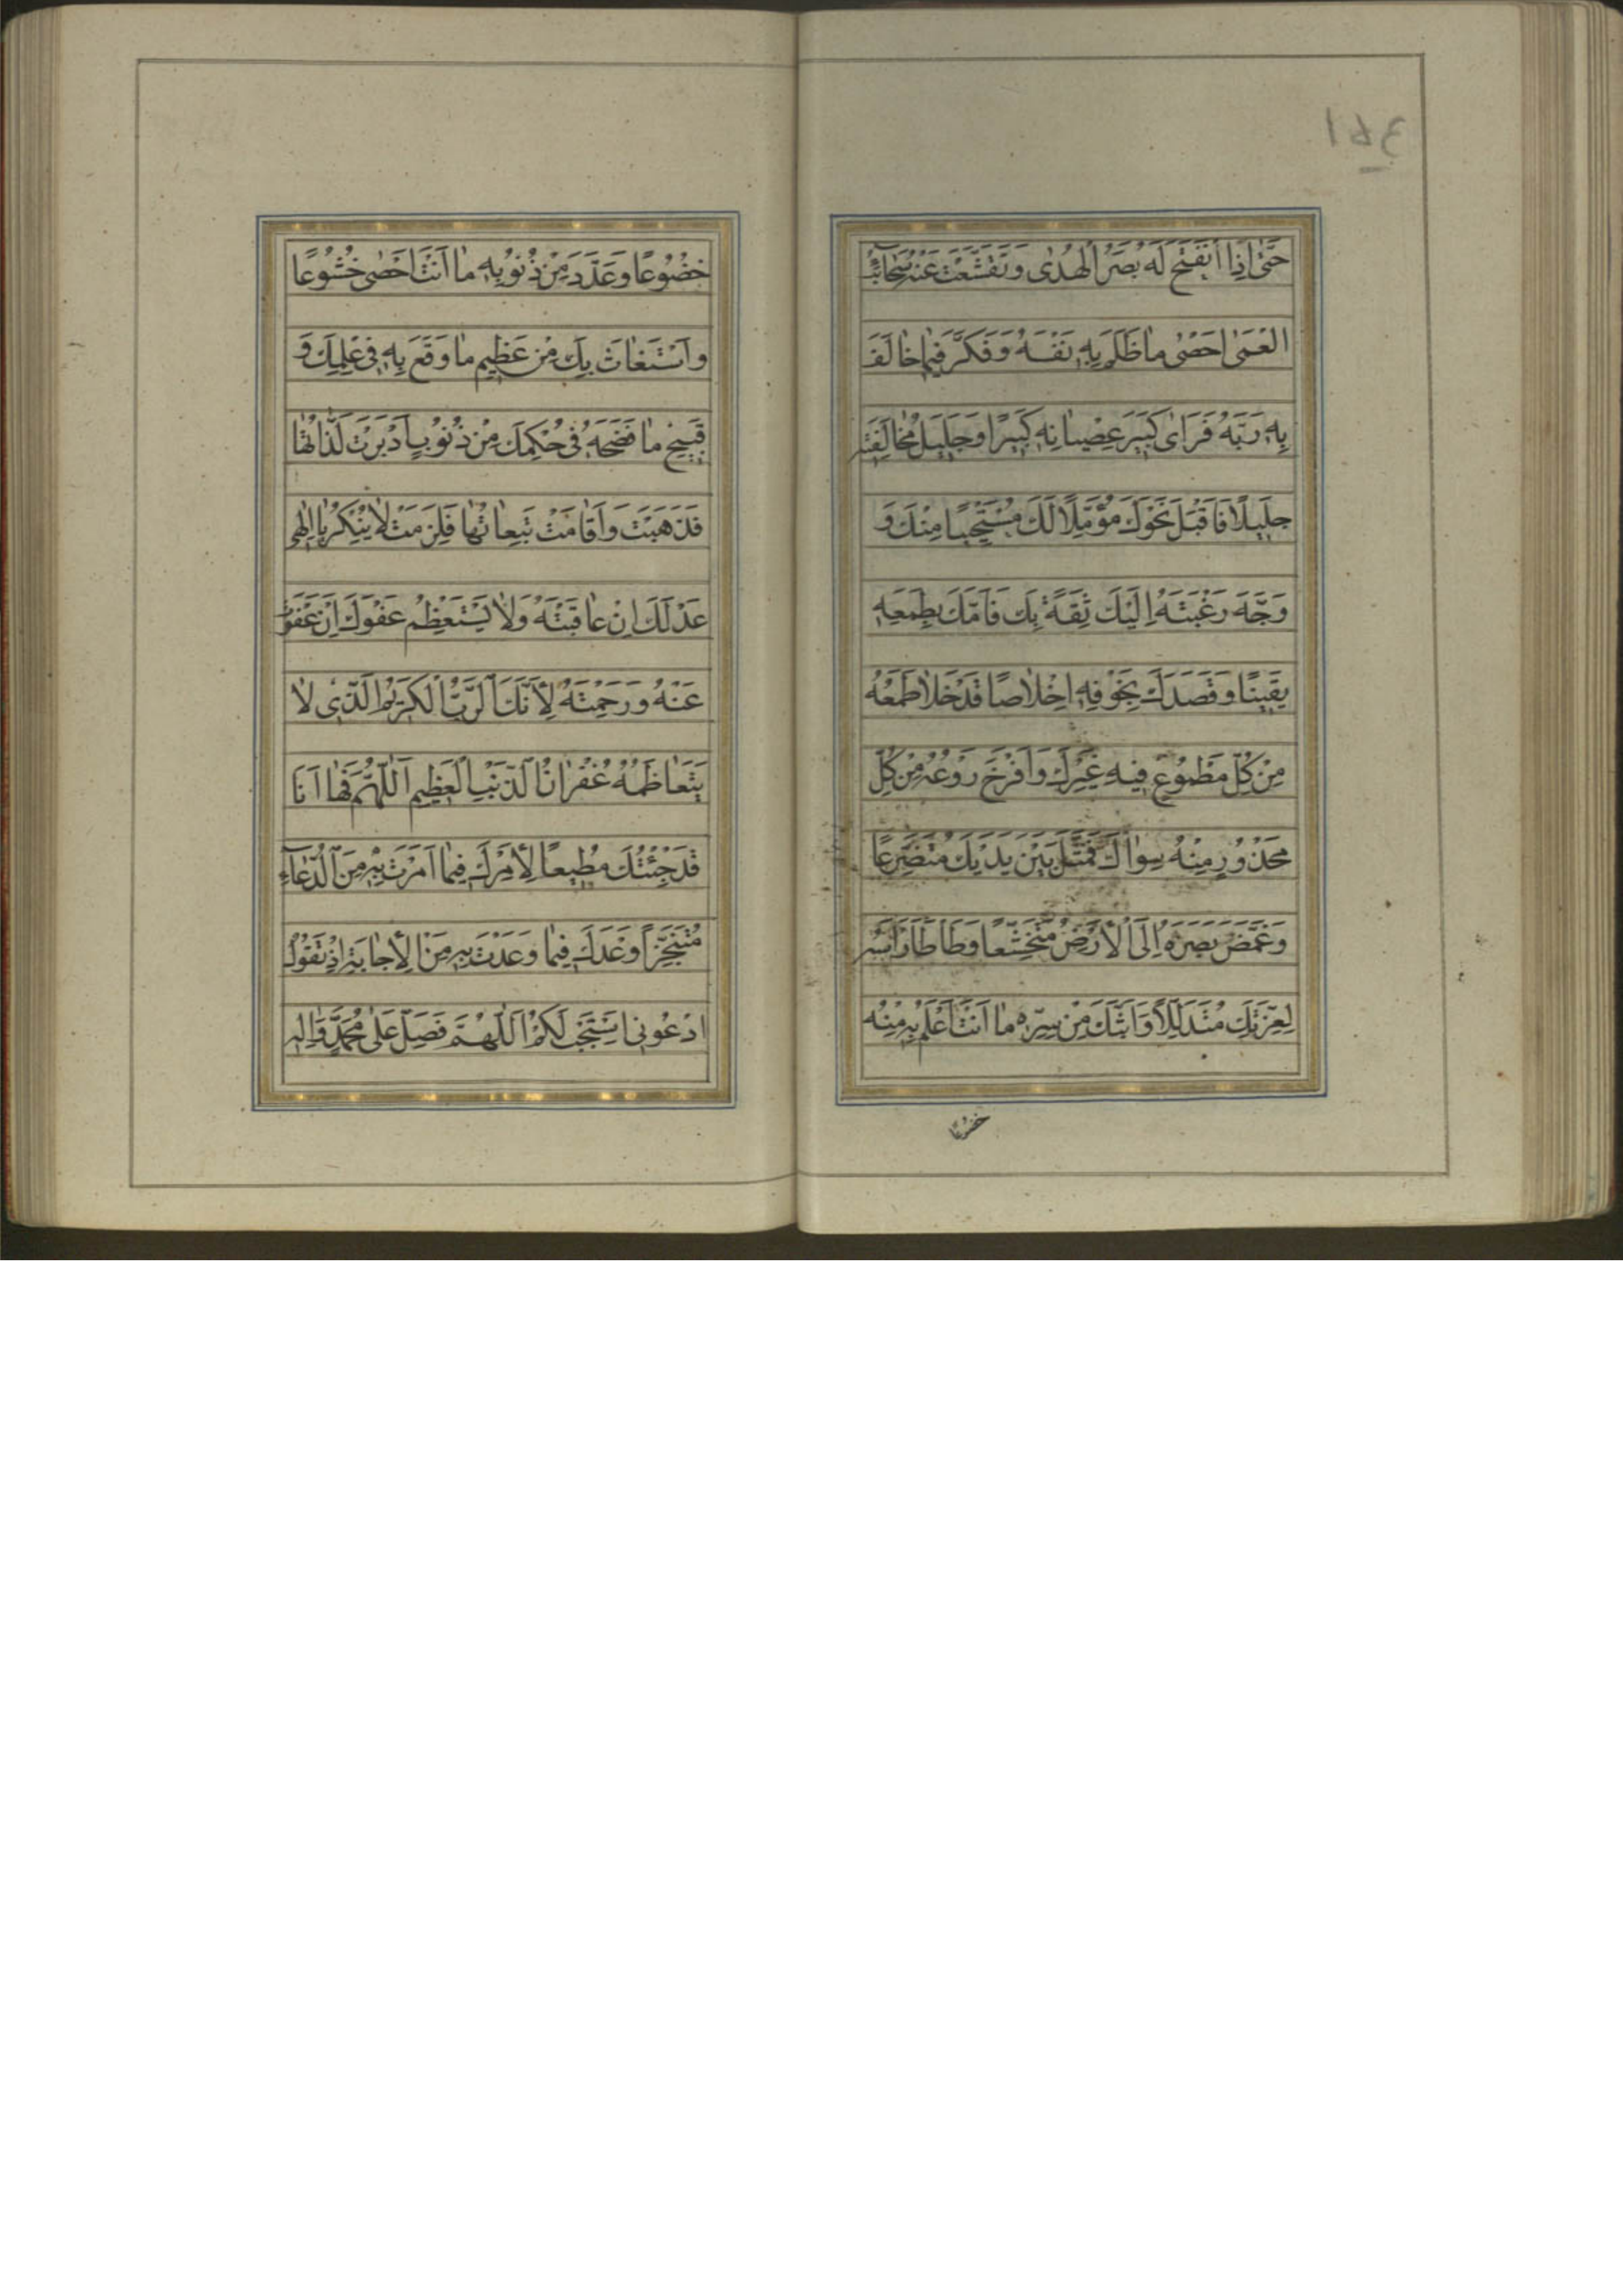 حَتّٰى اِذَا انْفَتَحَ لَهُ بَصَرُ الْهُدٰى وَتَقَشَّعَتْ عَنْهُ سَحَائِبُ
الْعَمٰى اَحْصٰى مٰا ظَلَمَ بِهِ نَفْسَهُ وَفَكَّرَ فِيمٰا خٰالَفَ
بِهِ رَبَّهُ فَرَاٰى كَبِيرَ عِصْيٰانِهِ كَبِيرًا وَجَلِيلَ مُخٰالَفَتِهِ
جَلِيلًا فَاَقْبَلَ نَحْوَكَ مُؤَمِّلًا لَكَ مُسْتَحْيِيًا مِنْكَ وَ
وَجَّهَ رَغْبَتَهُ اِلَيْكَ ثِقَةً بِكَ فَاَمَّكَ بِطَمَعِهِ
يَقِينًا وَقَصَدَكَ بِخَوْفِهِ اِخْلٰاصًا قَدْ خَلٰا طَمَعُهُ
مِنْ كُلِّ مَطْمُوعٍ فِيهِ غَيْرِكَ وَاَفْرَخَ رَوْعُهُ مِنْ كُلِّ
مَحْذُورٍ مِنْهُ سِوٰاكَ فَمَثَلَ بَيْنَ يَدَيْكَ مُتَضَرِّعًا
وَغَمَّضَ بَصَرَهُ اِلَى الْاَرْضِ مُتَخَشِّعًا وَطَاْطَاَ رَاْسَهُ
لِعِزَّتِكَ مُتَذَلِّلًا وَاَبَثَّكَ مِنْ سِرِّهِ مٰا اَنْتَ اَعْلَمُ بِهِ مِنْهُ
خضوعًا
خُضُوعًا وَعَدَّدَ مِنْ ذُنُوبِهِ مٰا اَنْتَ اَحْصٰى خُشُوعًا
وَاسْتَغٰاثَ بِكَ مِنْ عَظِيمِ مٰا وَقَعَ بِهِ فِي عِلْمِكَ وَ
قَبِيحِ مٰا فَضَحَهُ فِي حُكْمِكَ مِنْ ذُنُوبٍ اَدْبَرَتْ لَذّٰاتُهٰا
فَذَهَبَتْ وَاَقٰامَتْ تَبِعٰاتُهٰا فَلَزِمَتْ لٰا يُنْكِرُ يٰا اِلٰهِي
عَدْلَكَ اِنْ عٰاقَبْتَهُ وَلٰا يَسْتَعْظِمُ عَفْوَكَ اِنْ عَفَوْتَ
عَنْهُ وَرَحِمْتَهُ لِاَنَّكَ الرَّبُّ الْكَرِيمُ الَّذِي لٰا
يَتَعٰاظَمُهُ غُفْرٰانُ الذَّنْبِ الْعَظِيمِ اَللّٰهُمَّ فَهٰا اَنَا
قَدْ جِئْتُكَ مُطِيعًا لِاَمْرِكَ فِيمٰا اَمَرْتَ بِهِ مِنَ الدُّعٰآءِ
مُتَنَجِّزًا وَعْدَكَ فِيمٰا وَعَدْتَ بِهِ مِنَ الْاِجٰابَةِ اِذْ تَقُولُ
اُدْعُونِي اَسْتَجِبْ لَكُمْ اَللّٰهُمَّ فَصَلِّ عَلٰى مُحَمَّدٍ وَاٰلِهِ